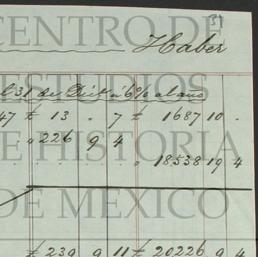 CENTRO DE
31
Haber
ESTUDIOS
al 31 de Dic. a 6% al año
47 £ 13 . 7 £ 1687 10 .
226 9 4
DE HISTORIA
18538 19 4
DE MEXICO
£ 239 9 11 £ 20226 9 4